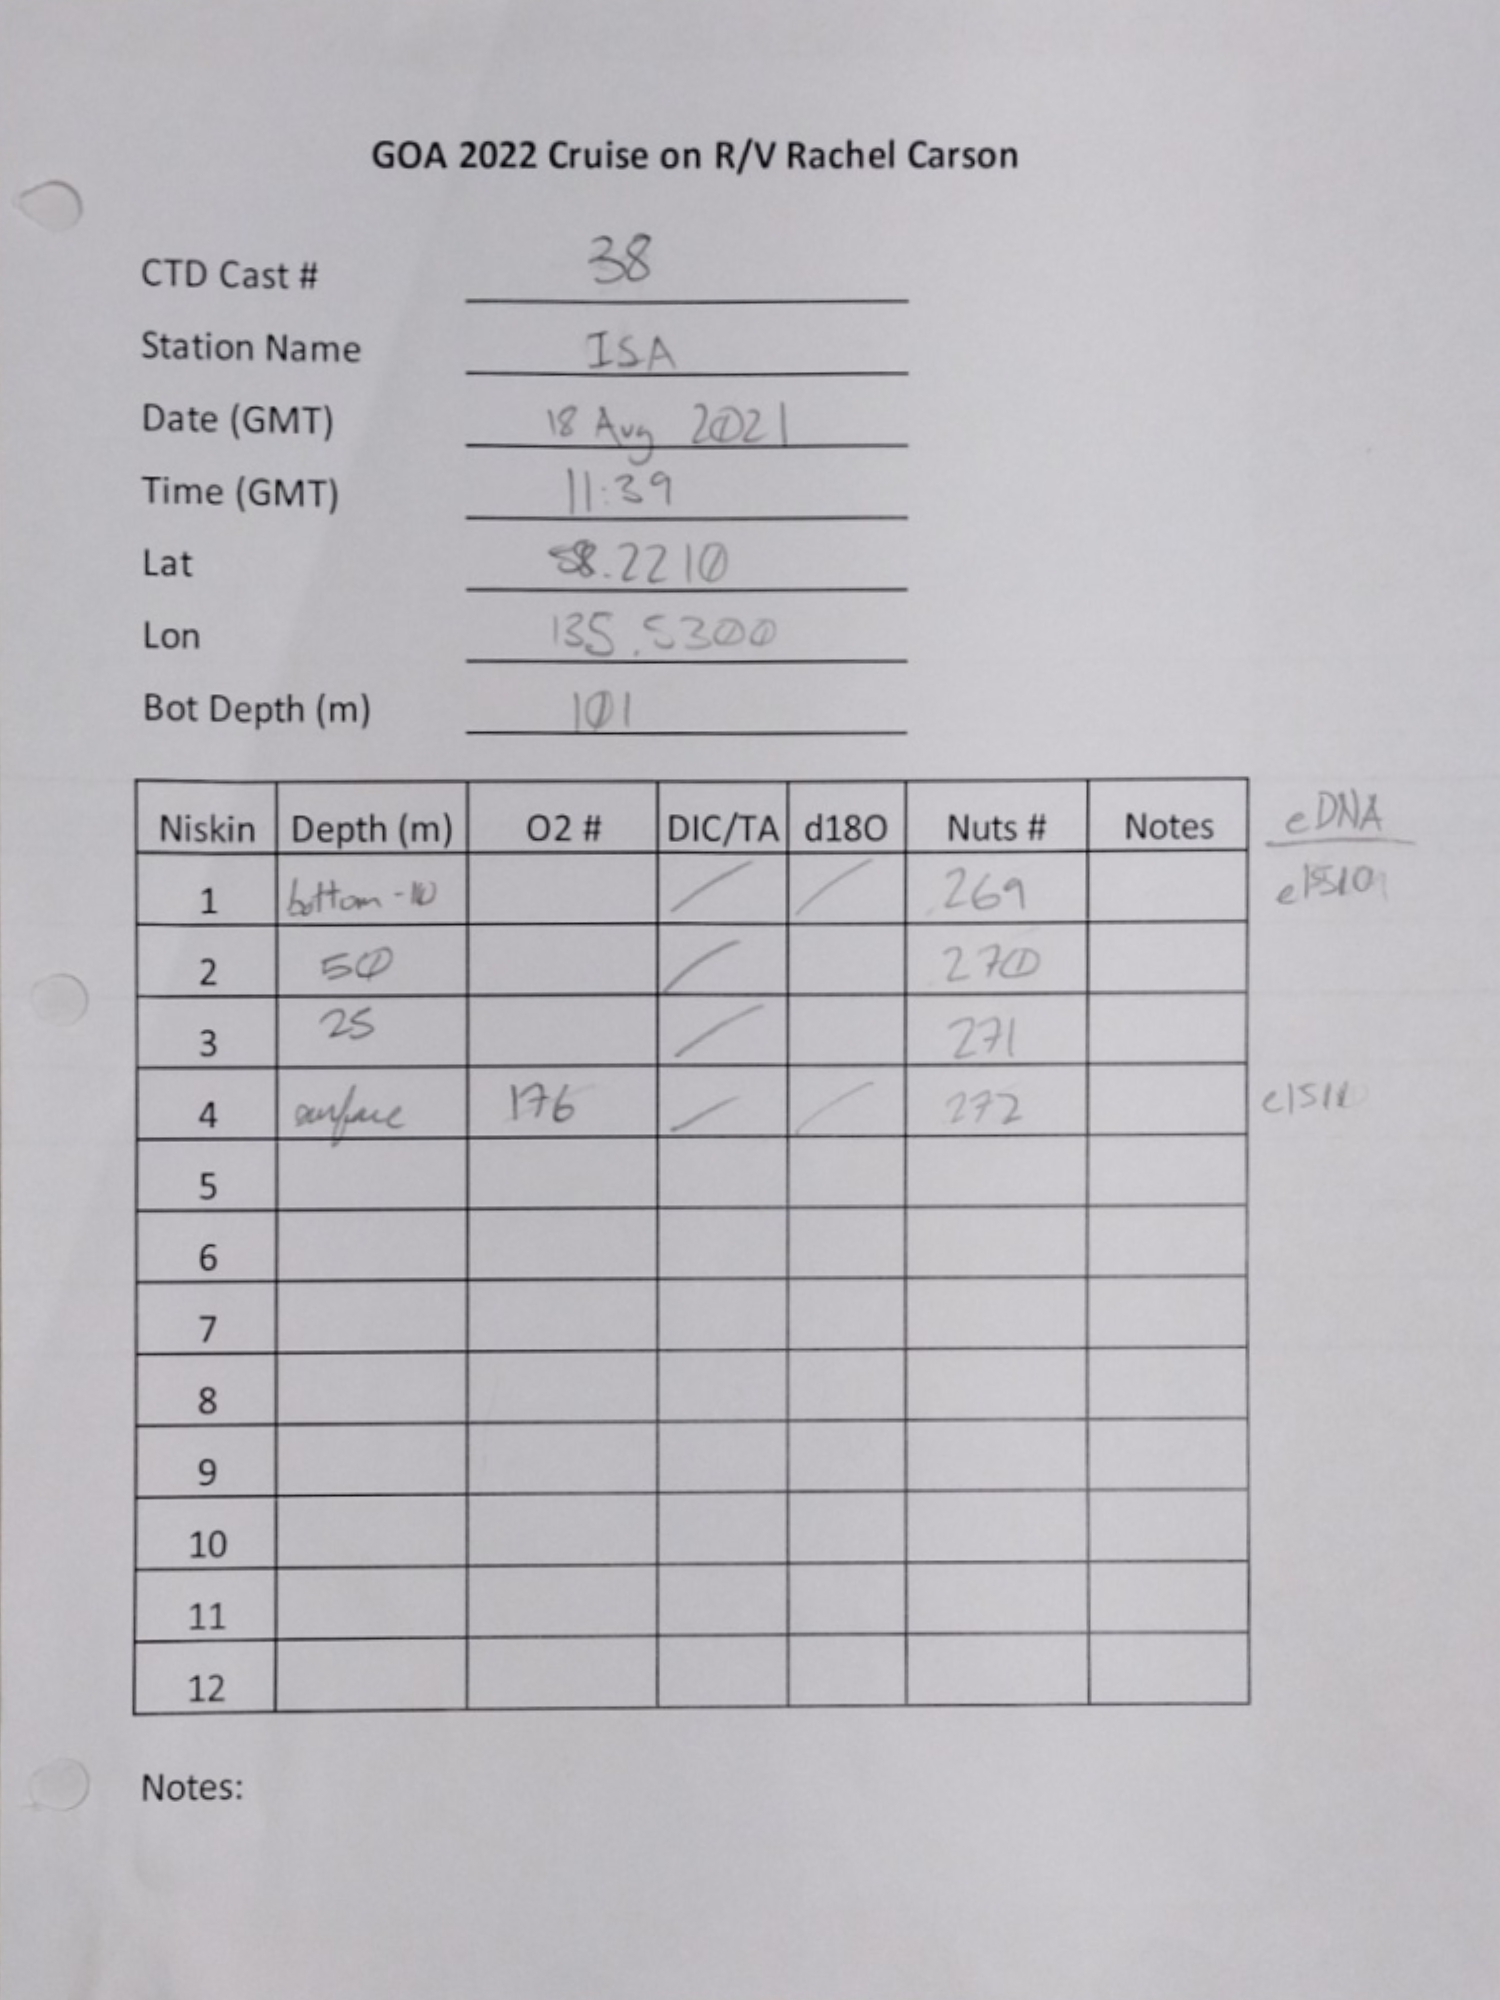 GOA 2022 Cruise on R/V Rachel Carson
CTD Cast # 38
Station Name ISA
Date (GMT) 18 Aug 2021
Time (GMT) 11:39
Lat 58.2210
Lon 135.5300
Bot Depth (m) 101
Niskin Depth (m) O2 # DIC/TA d18O Nuts # Notes eDNA
1 bottom -10 / / 269
2 50 / 270
3 25 / 271
4 surface 176 / / 272
5
6
7
8
9
10
11
12
Notes: